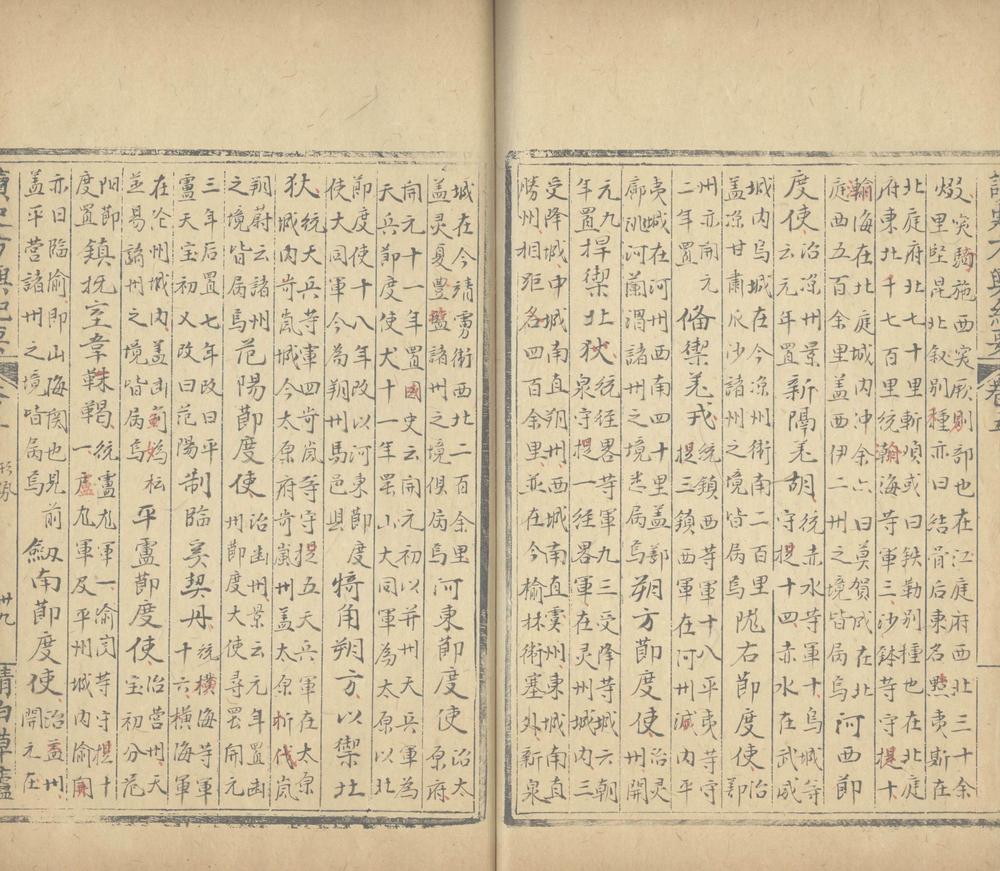 讀史方輿紀要 卷五
焌突騎施西突厥别部也在江庭府西北三十余
里堅昆北叙别種亦曰結骨后東名黠夷斯在
北庭府北七十里斬啜或曰鉄勒别種也在北庭
府東北千七百里統瀚海等軍三沙鉢等守捉十
瀚海在北庭城内冲余六曰莫賀城在北
庭西五百余里盖西伊二州之境皆局焉
河西節
度使
治凉州景
云元年置
断隔羌胡
統赤水等軍十烏城等
守捉十四赤水在武威
城内烏城在今凉州衛南二百里
盖凉甘肅瓜沙諸州之境皆局焉
隴右節度使
治
鄯
州亦開
二年置
备禦羌戎
統鎮西等軍十八平夷等守
捉三鎮西軍在河州減内平
夷城在河州西南四十里盖鄯
廓洮河蘭渭諸州之境悉局焉
朔方節度使
治灵
州開
元九
年置
捍禦北狄
統徑畧等軍九三受降等城六朝
等守捉一徑畧軍在灵州城内三
受降城中城南直朔州西城南直霊州東城南直
勝州相距各四百余里並在今榆林衛塞外新泉
城在今靖虜衛西北二百余里
盖灵夏豊塩諸州之境俱局焉
河東節度使
治太
原府
開元十一年置國史云開元初以并州天兵軍為
天兵節度使犬十一年罢山大同軍為太原以北
節度使十八年改以河東節
使大同軍今為朔州馬邑县
度犄角朔方以禦北
狄
統天兵等軍四岢岚等守捉五天兵軍在太原
城内岢嵐城今太原府岢嵐州盖太原忻代嵐
朔蔚云諸州
之境皆局焉
范陽節度使
治幽州景云元年置幽
州節度大使尋罢開元
三年后置七年改曰平
盧天宝初又改曰范陽
制臨奚契丹
統横海等軍
十六横海軍
在沧州城内盖幽薊媯檀
並易諸州之境皆局焉
平盧節度使
治營州天
宝初分范
阳節
度置
鎮抚室韋靺鞨
統盧龙軍一渝関等守捉十
一盧龙軍及平州城内渝関
亦曰臨渝即山海関也見前
盖平营諸州之境皆局焉
劔南節度使
治益州
開元在
讀史方輿紀要 形勢 廿九 清白草廬